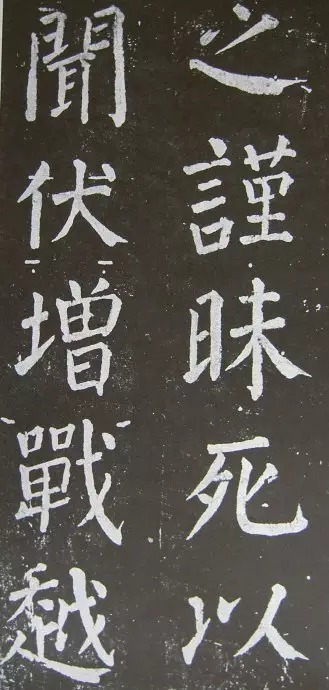 之謹昧死以
聞伏增戰越